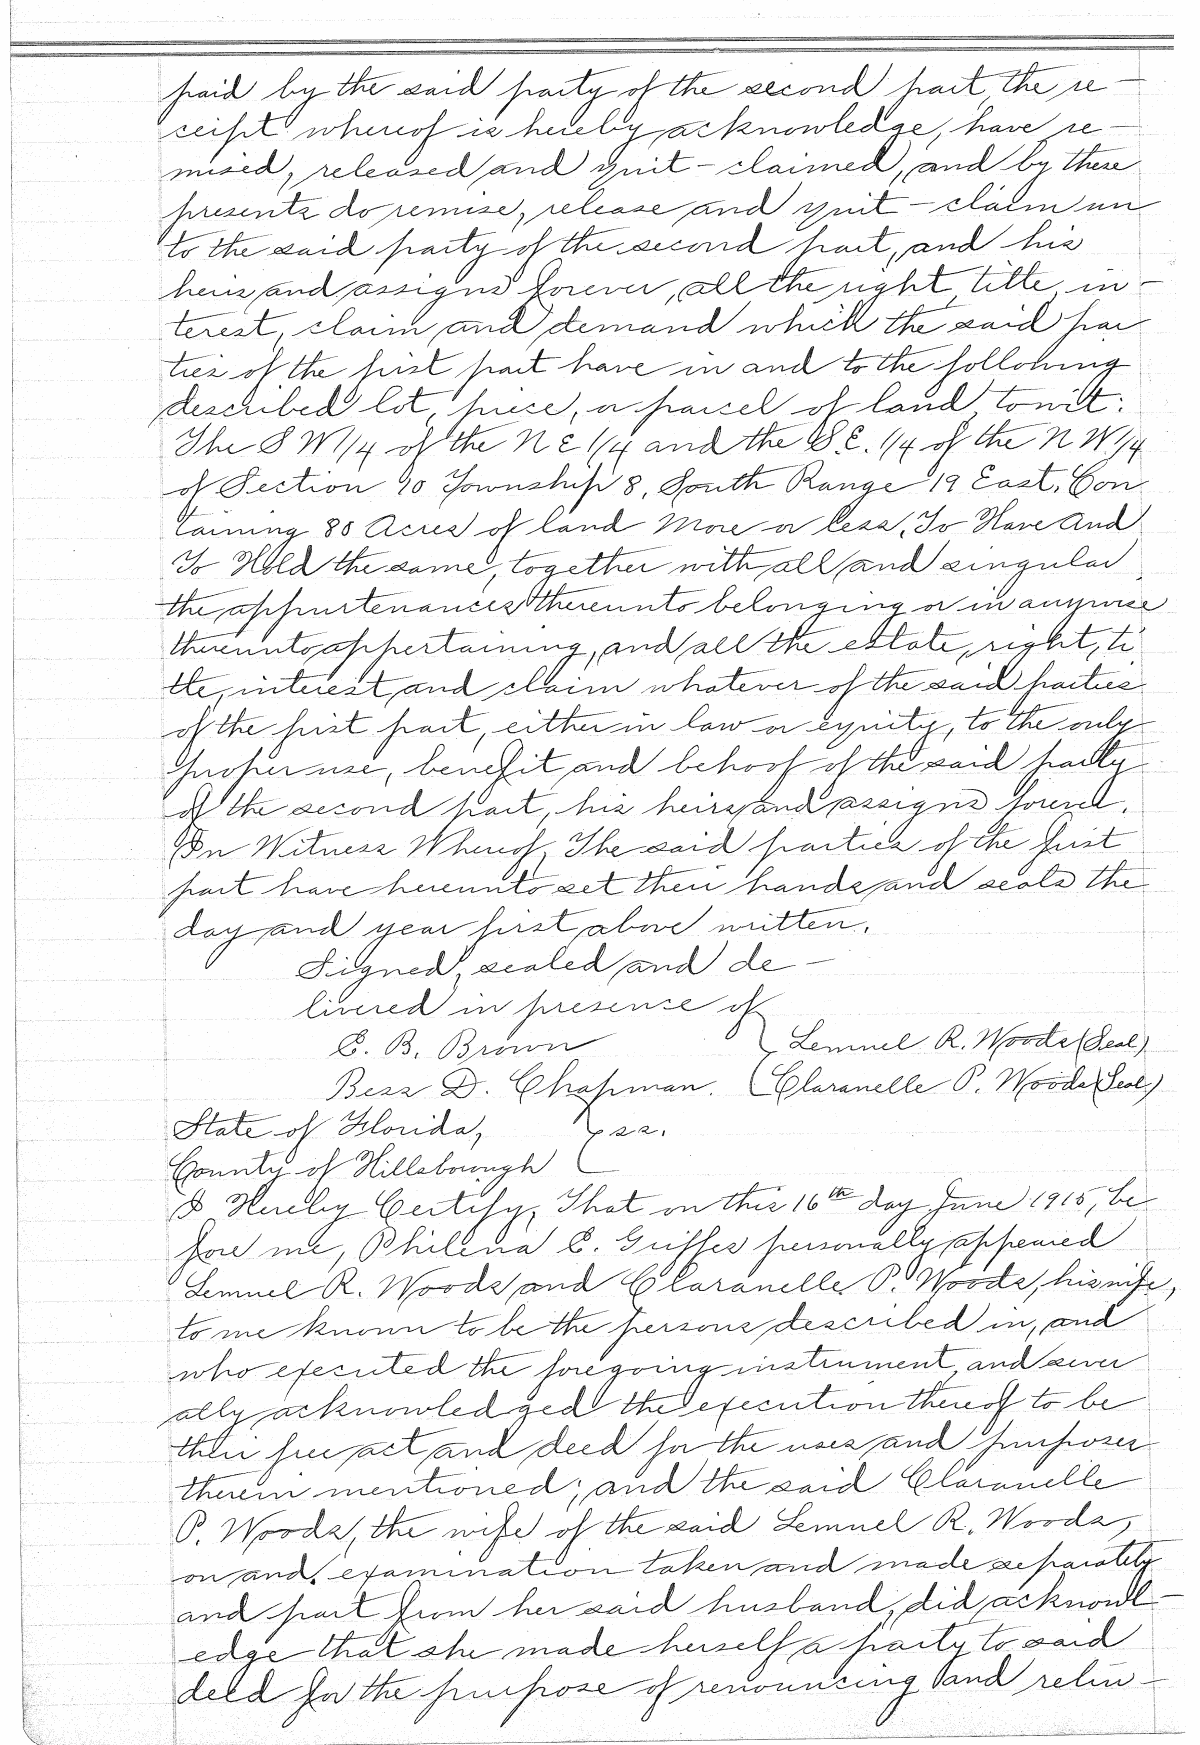 paid by the said party of the second part, the re-
ceipt whereof is hereby acknowledge, have re-
mised, released and quit-claimed, and by these
presents do remise, release and quit-claim un
to the said party of the second part, and his
heirs and assigns forever, all the right, title, in-
terest, claim and demand which the said par
ties of the first part have in and to the following
described lot, piece, or parcel of land, to wit:
The S W 1/4 of the N E 1/4 and the S. E. 1/4 of the N W 1/4
of Section 10 Township 8, South Range 19 East. Con
taining 80 Acres of land More or less, To Have And
To Hold the same, together with all and singular
the appurtenances thereunto belonging or in anywise
thereunto appertaining, and all the estate, right, ti
tle, interest, and claim whatever of the said parties
of the first part, either in law or equity, to the only
proper use, benefit and behoof of the said party
of the second part, his heirs and assigns forever.
In Witness Whereof, The said parties of the first
part have hereunto set their hands and seals the
day and year first above written.
Signed, sealed and de-
livered in presence of
E. B. Brown } Lemuel R. Woods (Seal)
Bess D. Chapman. Claranelle P. Woods (Seal)
State of Florida, } ss.
County of Hillsborough
I Hereby Certify, That on this 16th day June 1915, be
fore me, Philena E. Griffes personally appeared
Lemuel R. Woods and Claranelle P. Woods, his wife,
to me known to be the persons described in, and
who executed the foregoing instrument, and sever
ally acknowledged the execution thereof to be
their free act and deed for the uses and purposes
therein mentioned; and the said Claranelle
P. Woods, the wife of the said Lemuel R. Woods,
on and. examination taken and made separately
and part from her said husband, did acknowl-
edge that she made herself a party to said
deed for the purpose of renouncing and relin-